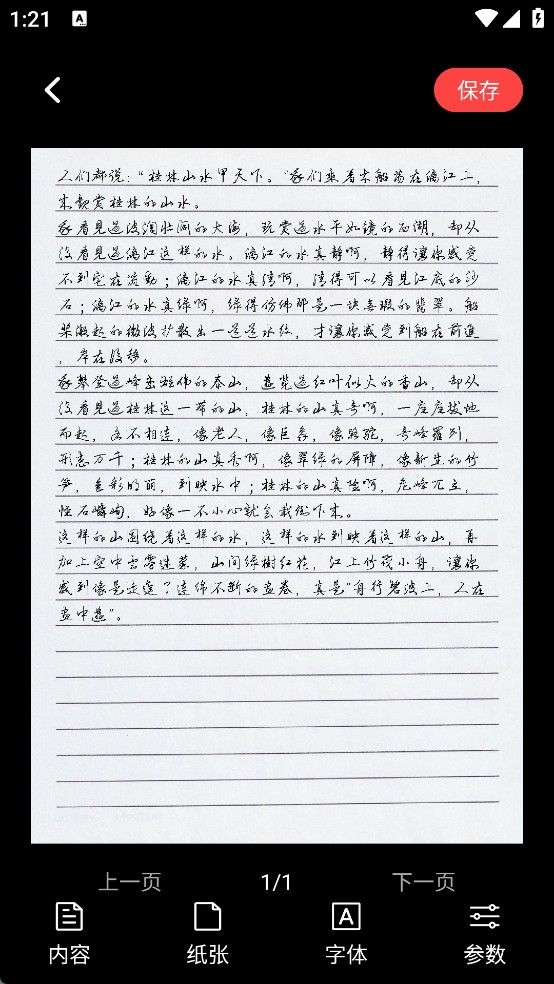 1:21
A
保存
人们都说："桂林山水甲天下。"我们乘着木船荡在漓江上，
来观赏桂林的山水。
我看見過波澜壮阔的大海，玩赏過水平如镜的西湖，却从
没看見過漓江这样的水。漓江的水真静啊，静得讓你感觉
不到它在流動；漓江的水真清啊，清得可以看見江底的沙
石；漓江的水真绿啊，绿得仿佛那是一块無瑕的翡翠。船
桨激起的微波扩散出一道道水纹，才讓你感觉到船在前進
，岸在後移。
我攀登過峰峦雄伟的泰山，遊览過红叶似火的香山，却从
没看見過桂林这一带的山，桂林的山真奇啊，一座座拔地
而起，各不相连，像老人，像巨象，像骆驼，奇峰罗列，
形态万千；桂林的山真秀啊，像翠绿的屏障，像新生的竹
笋，色彩明丽，倒映水中；桂林的山真险啊，危峰兀立，
怪石嶙峋，好像一不小心就会栽倒下来。
这样的山围绕着这样的水，这样的水倒映着这样的山，再
加上空中雲雾迷蒙，山间绿樹红花，江上竹筏小舟，讓你
感到像是走進了连绵不断的画卷，真是"舟行碧波上，人在
画中遊"。
上一页
1/1
下一页
内容
纸张
A
字体
参数